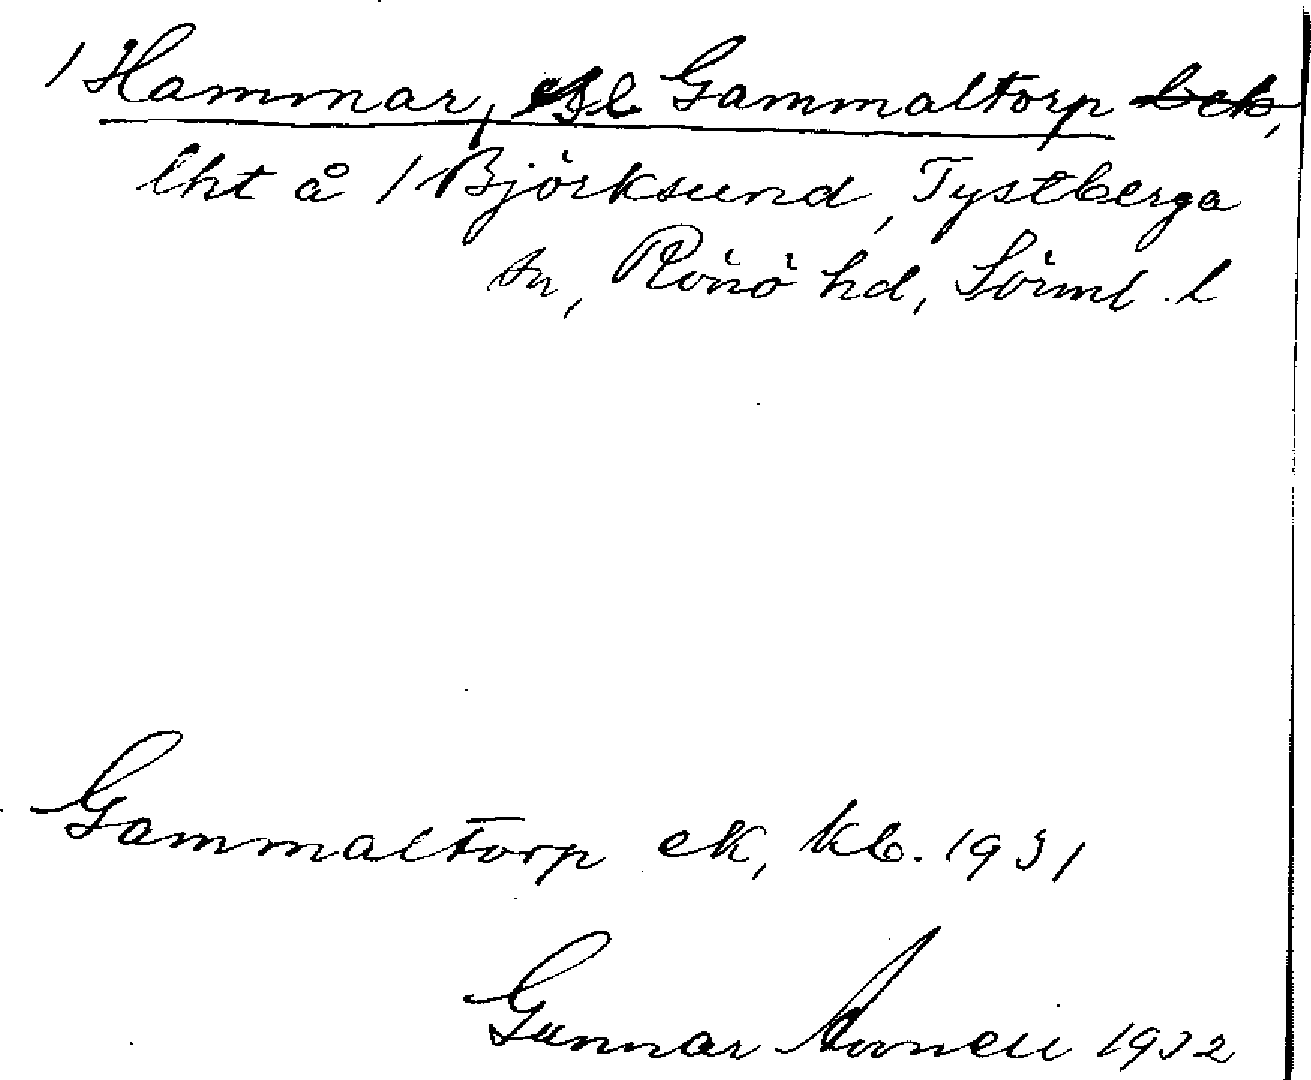 / Hammar, el Gammaltorp
lht å / Björksund, Tystberga
sn, Rönö hd, Sörml. l
Gammaltorp ek, kb. 1931
Gunnar 1932